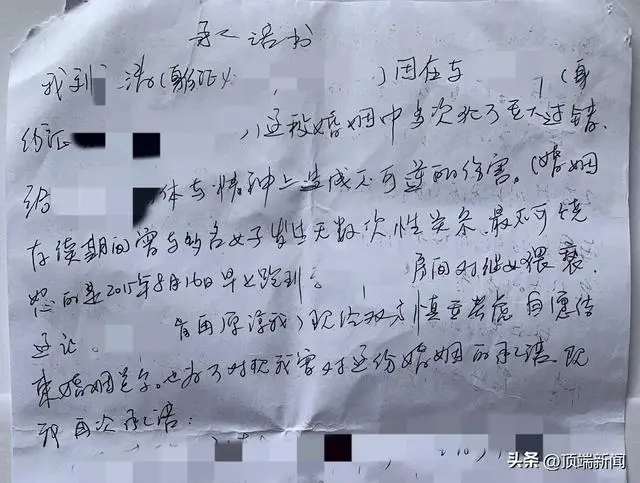 承诺书
我刘 清(身份证 )因在与 (身
份证 )这段婚姻中多次犯了重大过错.
给 体与精神上造成不可逆的伤害。(婚姻
存续期间曾与多名女子发生无数次性关系.最不可饶
恕的是2015年8月16日早上跑到 房间对继女猥亵.
这让 原谅我)现经双方慎重考虑自愿结
束婚姻关系。也为了对 我曾对这份婚姻的承诺.现
再次承诺:
头条 @顶端新闻